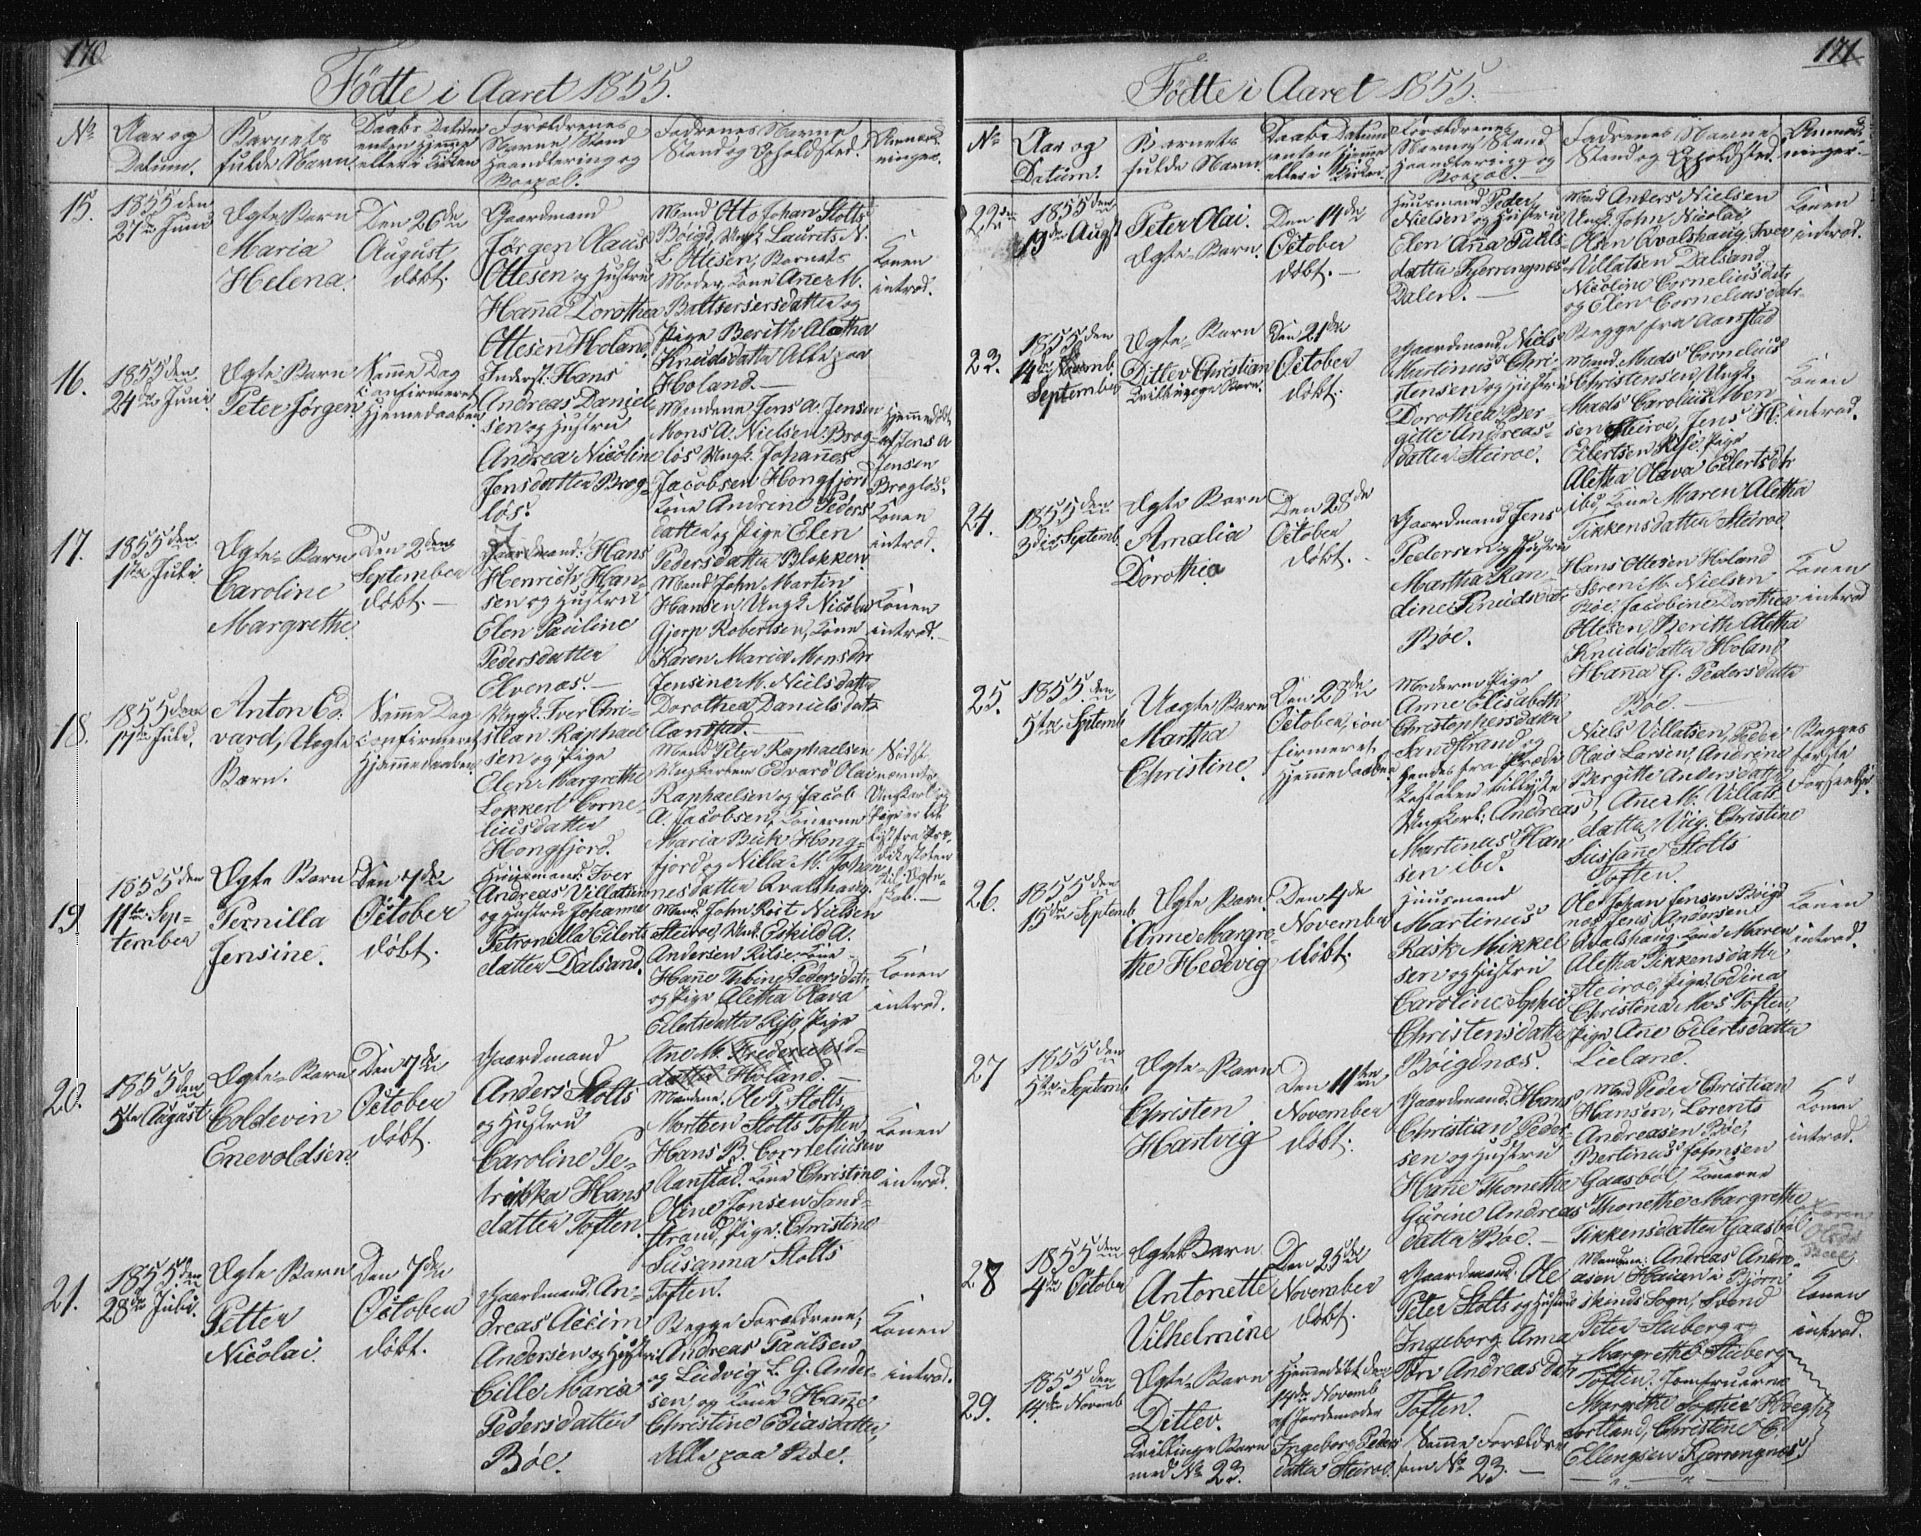 170
Fødte i Aaret 1855.
No
Aar og
Datum.
Barnets
fulde Navn.
Daabs Datum
enten hjemme
eller i Kirken
Forældrenes
Navne, Stand
Haandtering og
Bopæl.
Fadrenes Navne
Stand og Opholdsted.
Anmærk-
ninger.
15.
1855 den
27de Juni
Ægte Barn
Maria
Helena.
Den 26de
August
døbt.
Gaardmand
Jørgen Olaus
Ottesen og Hustru
Hanna Dorothea
Ottesen Holand.
Mand Otto Johan Stolts
Bøigd, Ungk. Laurits N.
L. Ottesen, Barnets
Moder, Kone Ane M.
Baltsersersdatter og
Pige Berith Aletha
Knudsdatter Alle paa
Holand.
Konen
introd.
16.
1855 den
24de Juni.
Ægte Barn
Peter Jørgen
Samme Dag
confirmeret
Hjemmedaaben.
Inderst Hans
Andreas Daniel-
sen og Hustru
Andrea Nicoline
Jensdatter Brog-
løs.
Mændene Jens A. Jensen
Mons A. Nielsen Brog-
løs, Ungk. Johannes
Jacobsen Hongfjord
Kone Andrine Peders
datter og Pige Elen
Pedersdatter Blokken
Hjemmedøbt
af Jens A
Jensen
Brogløs.
Konen
introd.
17.
1855 den
1ste Juli
Ægte Barn
Caroline
Margrethe.
Den 2den
September
døbt.
Gaardmand: Hans
Henrich Han-
sen og Hustru
Elen Pauline
Pedersdatter
Elvenæs.
Mand John Martin
Hansen, Ungk. Nicolai
Gjerp Robertsen, Kone
Karen Maria Monsdtr
Jensine M. Nielsdatter
Dorothea Danielsdatr
Aanstad.
Konen
introd.
18.
1855 den
17de Juli.
Anton Ed-
vard, Uægte
Barn.
Samme Dag
confirmeret
Hjemmedaaben.
Ungk. Iver Chri-
stian Raphael
sen og Pige
Elen Margrethe
Lokkert Corne-
liusdatter
Hongfjord.
Mand Peter Raphaelsen
Ungkarlene Edvard Olai
Raphaelsen og Jacob
A. Jacobsen, Konerne
Maria Buk Hong-
fjord og Nilla M. Johan
nesdatter Qvalshaug.
Sidst
nævnte
Ungkarl og
Pige er til
lyst fra Præ-
dikestolen
til Ægte-
skab.
19
1855 den
11te Sep-
tember
Ægte Barn
Pernilla
Jensine.
Den 7de
October
døbt.
Huusmand: Iver
Andreas Villatsen
og Hustru Johanna
Petronilla Eilerts
datter Dalsand.
Mand: John Rist Nielsen
Steiroe, Ungk. Eskild A.
Andersen Rilsø, Kone
Hane Thobine Pedersdatr
og Pige Aletha Olava
Eilertsdatter Risø, Pige
Ane M. Frederichsd-
datter Holand.
Konen
introd.
20.
1855 den
5te August
Ægte Barn
Coldevin
Enevoldsen.
Den 7de
October
døbt.
Gaardmand
Anders Stolts
og Hustru
Caroline Pe-
trikka Hans
datter Toften.
Mændene: Ole P. Stolts,
Morthen Stolts Toften,
Hans B. Corneliusen
Aanstad. Kone Christine
Oline Jonsen Sand-
strand, Pige: Christine
Susanna Stolts
Toften.
Konen
introd.
21.
1855 den
28de Juli.
Ægte Barn
Petter
Nicolai.
Den 7de
October
døbt.
Gaardmand. An-
dreas Accim
Andersen og Hustru
Cille Maria
Pedersdatter
Bøe.
Begge Forældrene,
Andreas Paulsen
og Ludvig L. G. Ander-
sen, og Kone Hanne
Christine Ediasdatter,
Alle paa Bøe.
Konen
introd.
171
Fødte i Aaret 1855.
No
Aar og
Datum.
Barnets
fulde Navn
Daabs Datum
enten hjemme
eller i Kirken.
Forældrenes
Navne, Stand
Haandtering og
Bopæl.
Fadrenes Navne
Stand og Opholdsted.
Anmærk-
ninger.
22de
1855 den
19de Augst
Peter Olai.
Ægte Barn.
Den 14de
October
døbt.
Huusmand Peder
Nielsen og Hustru
Elen Anna Pauls
datter Kjerringnæs
Dalen.
Mand Anders Nielsen
Ungk. John Nicolai
Olsen Qvalshaug, Iver
Villatsen Dalsand
Nicoline Corneliusdatr
og Elen Corneliusdatr
Begge fra Aanstad
Konen
introd.
23.
1855 den
14de Novemb.
September
Ægte Barn
Ditlev Christian
Tvillinge Barn.
Den 21de
October
døbt.
Gaardmand Niels
Martinus Chri-
stensen og Hustru
Dorothea Ber-
gitte Andreas-
datter Steiroe.
Mand Mads Cornelius
Christensen, Ungk.
Mads Carolius Mon
sen Steiroe, Jens H.
Eilertsen Risø, Pige
Aletha Olava Eilertsdtr
ibd, Kone Maren Aletha
Tikkensdatter Steiroe
Konen
introd.
24.
1855 den
3die Septemb.
Ægte Barn
Amalia
Dorothea
Den 28de
October
døbt.
Gaardmand Jens
Pedersen og Hustru
Martha Ran-
dine Knudsdatr
Bøe.
Hans Ottesen Holand
Søren M. Nielsen
Bøe, Jacobine Dorothea
Ottesen, Berith Aletha
Knudsdatter Holand
Hanna G. Pedersdatter
Bøe.
Konen
introd
25.
1855 den
5te Septemb.
Uægte Barn
Martha
Christine.
Den 28de
October, con-
firmeret
Hjemmedaaben
Moderen Pige
Anne Elisabeth
Christophersdatter
Sandstrand og
hendes fra Prædi
kestolen tillyste
Ungkarl: Andreas
Martinus Han
sen ibd.
Niels Villatsen, Peder
Olai Larsen, Andrina
Bergitte Andersdatter,
Ane M. Villats
datter, Pige Christine
Susanne Stolts
Toften.
Begges
første
Forseelse.
26.
1855 den
15de Septemb.
Ægte Barn.
Anne Margre-
the Hedevig
Den 4de
November
døbt.
Huusmand
Martinus
Rask Mikkel
sen og Hustru
Caroline Sophie
Christensdatter
Bøigdnæs.
Ole Johan Jensen Bøigd
næs, Jens Andersen
Qvalshaug. Kone Maren
Aletha Tikkensdatter
Steiroe, Pige Edina
Christina Moes Toften,
Pige Ane Eilertsdatter
Lieland.
Konen
introd.
27
1855 den
5te Septemb
Ægte Barn
Christen
Hartvig
Den 11te
November
døbt.
Gaardmand: Hans
Christian Peder-
sen og Hustru
Hanne Thonetha
Gurine Andreas
datter Bøe.
Mand Peder Christian
Hansen, Lorents
Andreasen Bøe,
Bertinus Johnsen
Gaasbøl, Konerne
Thonetha Margrethe
Tikkensdatter Gaasbøl
Konen
introd.
28
1855 den
4de October
Ægte Barn
Antonette
Vilhelmine
Den 25de
November
døbt.
Gaardmand: Ole
Peter Stolts og Hustru
Ingeborg Anna
Tørr Andreasdatr
Toften.
Mændene: Andreas Andre-
asen Hauen i Bjørn
skinds Sogn, Svend
Peter Stuberg og
Margrethe Stuberg
Toften. Jomfruerne
Margrethe Sophie Høegh
Sortland, Christine C.
Ellengsen Kjerringnæs.
Konen
introd.
29.
1855 den
14de Novemb
Ægte Barn
Ditlev.
Tvillinge Barn
med No 23.
Hjemmedøbt den
14de Novemb
af Jordemoder
Ingeborg Peders
datter Steiroe.
Samme Forældre
som No 23.